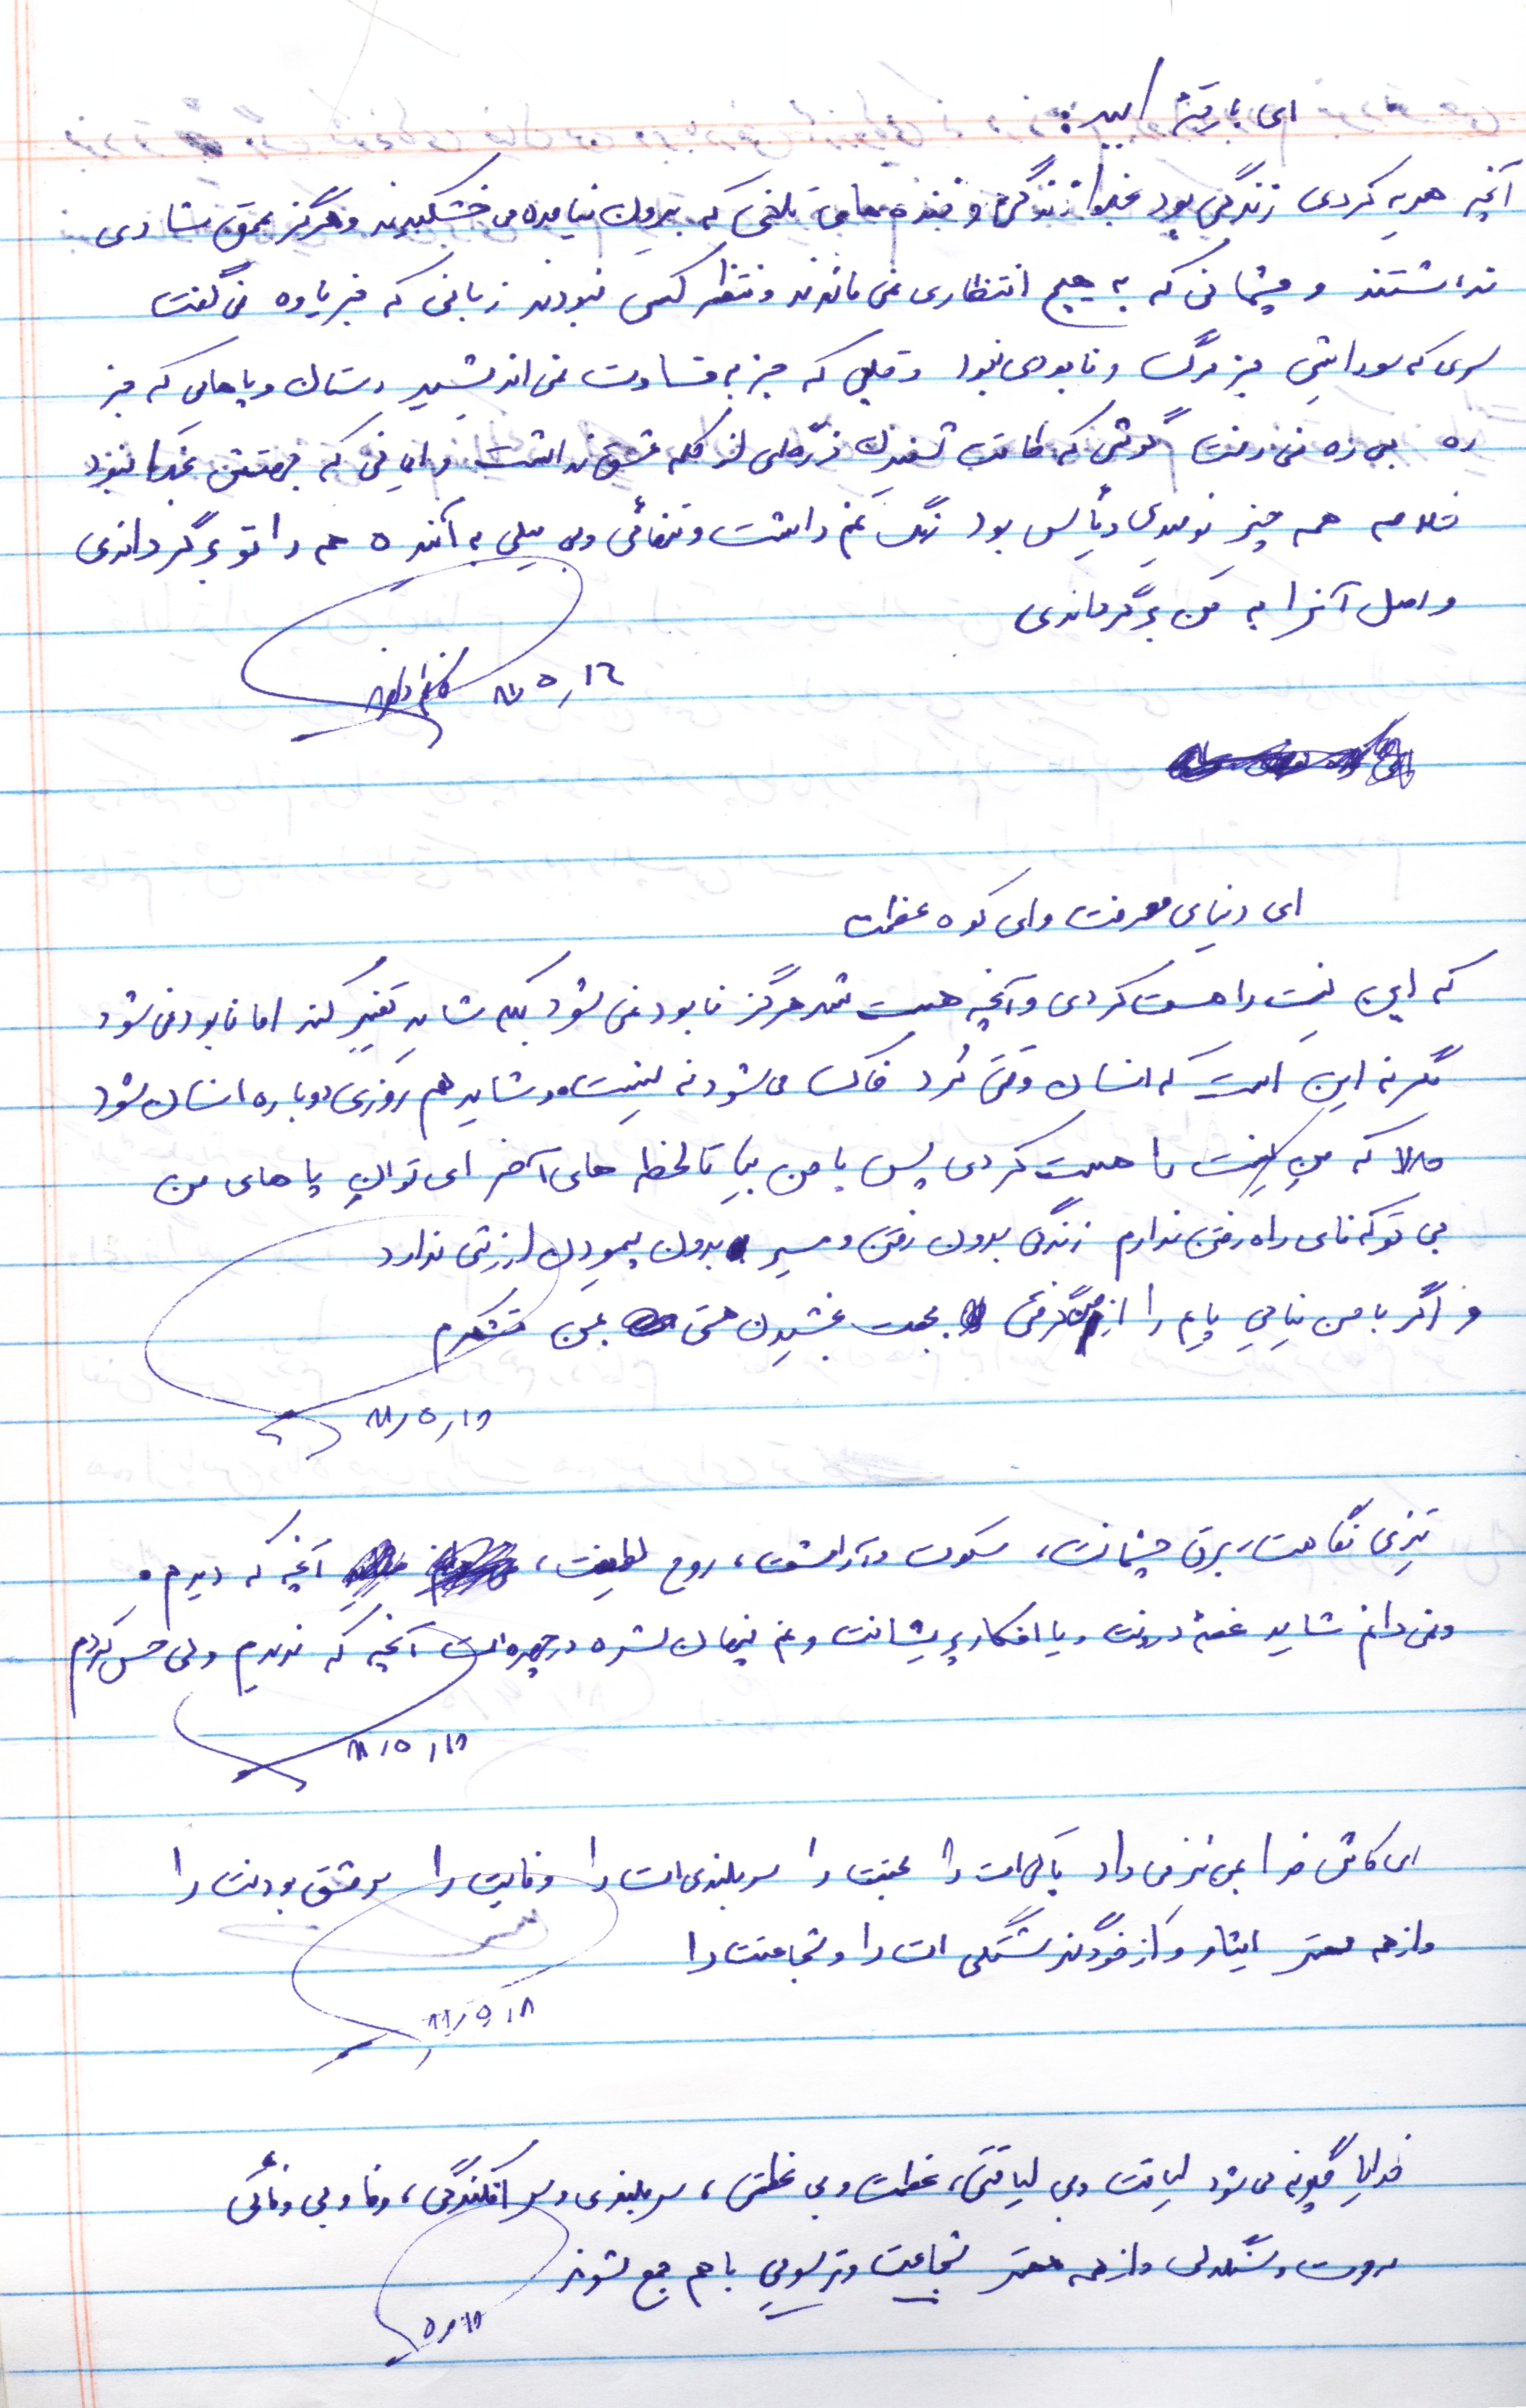 آنچه هدیه کردی زندگی بود زندگی و خنده های تلخی که بیرون نیامده می خشکیدند و هرگز عمق شادی
نداشتند و چشمانی که به هیچ انتظاری نمی ماندند و منتظر کسی نبودند زبانی که جز یاوه نمی گفت
سری که سودایش جز مرگ و نابودی نبود و قلبی که جز به قساوت نمی اندیشید دستان و پاهایی که جز
ره بی راه نمی رفت گوشی که طاقت شنیدن ذره ای از کلمه عشق نداشت و که نبود
خلاصه همه چیز نومیدی و یأس بود رنگ غم داشت و تنهائی و بی میلی به آینده همه را تو برگرداندی
و اصل آنرا به من برگرداندی
۸۷ ر ۵ ر ۱۶
ای دنیای معرفت و ای کوه عظمت
که این نیست را هست کردی و آنچه هست شد هرگز نابود نمی شود بلکه شاید تغییر کند اما نابود نمی شود
مگر نه این است که انسان وقتی مُرد خاک می شود نه نیست و شاید هم روزی دوباره انسان شود
حالا که من نیست را هست کردی پس با من بیا تا لحظه های آخر ای توان پاهای من
بی تو که نای راه رفتن ندارم زندگی بدون رفتن و مسیر بدون پیمودن ارزشی ندارد
و اگر با من نیایی پایم را از من گرفتی بجهت بخشیدن هستی بمن متشکرم
۸۷ ر ۵ ر ۱۸
تیزی نگاهت، برق چشمانت، سکوت و آرامشت، روح لطیفت، آنچه که دیدم و
و نمی دانم شاید غصهٔ درونت و یا افکار پریشانت و غم پنهان شده در چهره ات آنچه که ندیدم ولی حس کردم
۸۷ ر ۵ ر ۱۸
ای کاش خدا بمن نیز می داد پاکی ات را محبتت را سربلندی ات را وفایت را سرمشق بودنت را
و از همه مهمتر ایثار و از خودگذشتگی ات را و شجاعتت را
۸۷ ر ۵ ر ۱۸
خدایا چگونه می شود لیاقت و بی لیاقتی، عظمت و بی عظمتی، سربلندی و سرافکندگی، وفا و بی وفائی
مروت و سنگدلی و از همه مهمتر شجاعت و ترسویی با هم جمع شوند